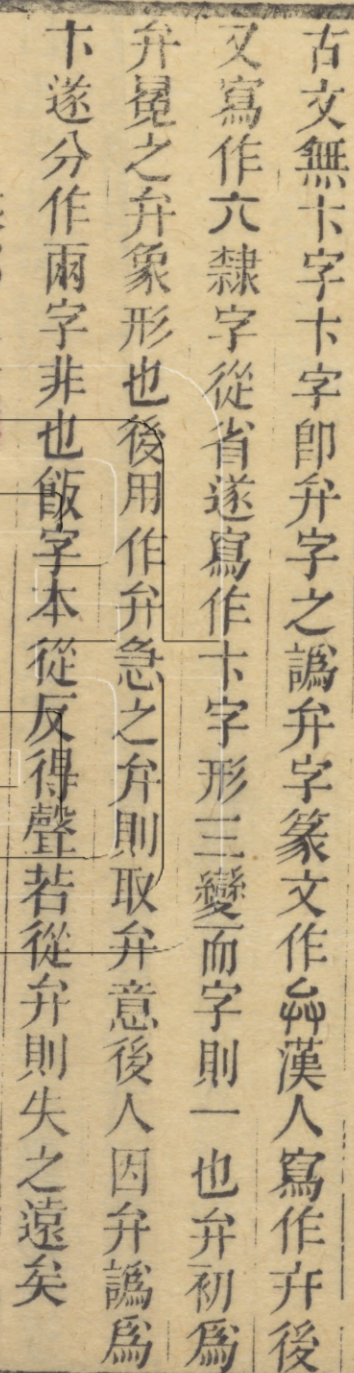 古文無卞字卞字即弁字之譌弁字篆文作漢人寫作弁後
又寫作六隸字從省遂寫作卞字形三變而字則一也弁初爲
弁冕之弁象形也後用作弁急之弁則取弁意後人因弁譌爲
卞遂分作兩字非也飯字本從反得聲若從弁則失之遠矣